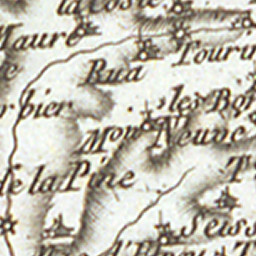 la Coste
Maure
Tourin
Rua
rbier
les Bor
Mon Neuve
de la Pine
Seiss